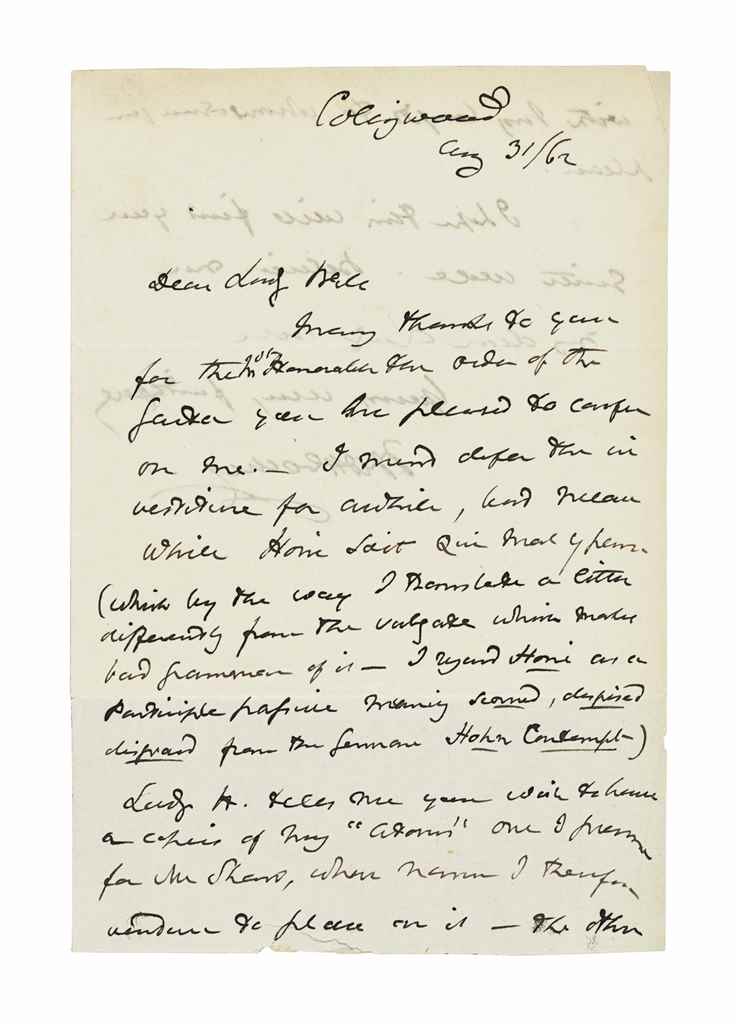 Collingwood
Aug 31/62
Dear Lady Bell
Many thanks to you
for the Honorable the order of the
Garter you are pleased to confer
on me. — I must defer the in
vestiture for awhile, but mean
while Honi Soit Qui Mal y pense
(which by the way I translate a little
differently from the vulgate which makes
bad grammar of it — I regard Honi as a
Participle passive meaning scorned, despised
disgraced from the German Hohn Contempt)
Lady H. tells me you wish to have
a copies of my "Atoms" one I presume
for Mr Shaw, whose name I therefore
venture to place on it — the other